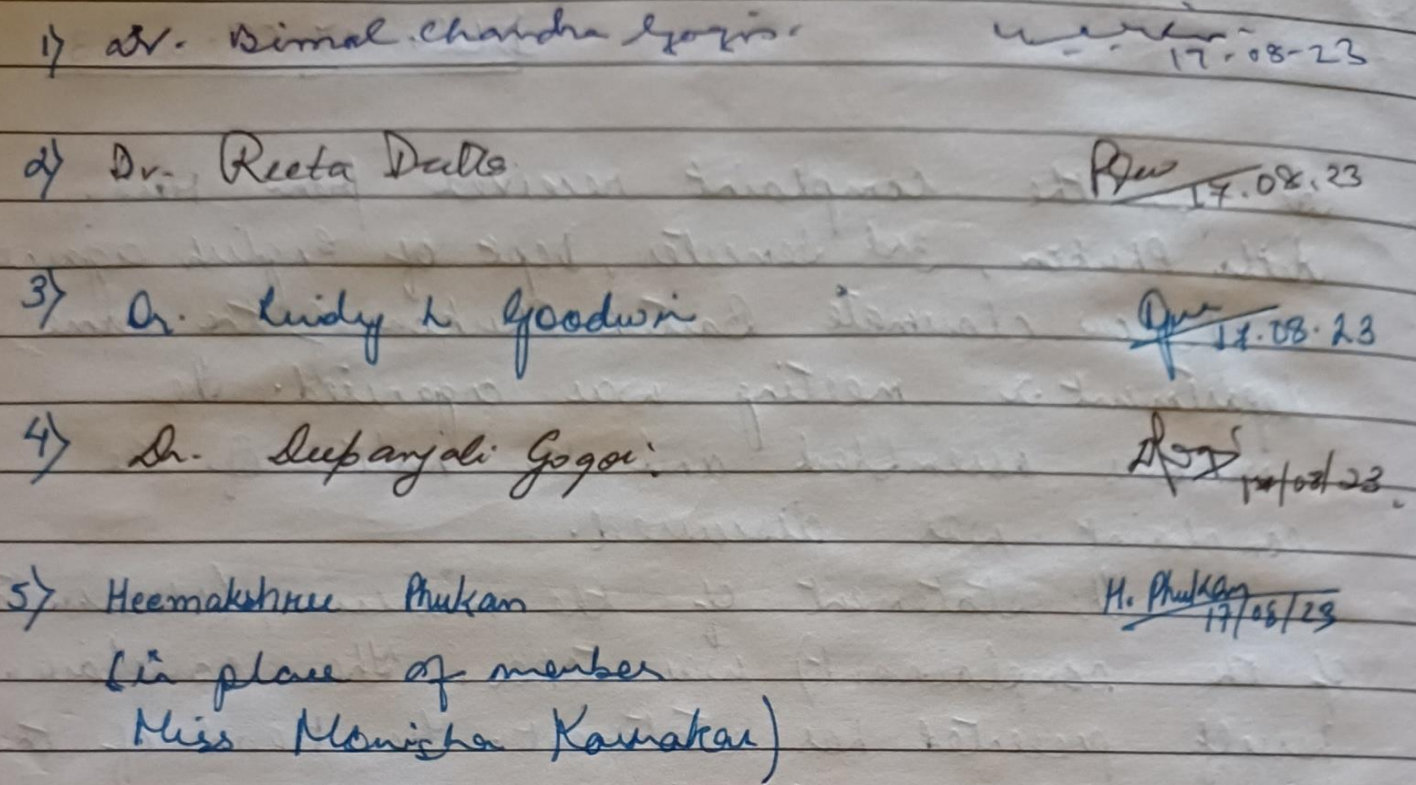 1) Dr. Bimal Chandra Gogoi. 17-08-23
2) Dr. Reeta Dutta 17.08.23
3) Dr. Lindy L Goodwin 17.08.23
4) Dr. Deepanjali Gogoi. 17/08/23.
5) Heemakshree Phukan H. Phukan 17/08/23
(in place of member
Miss Monisha Karmakar)